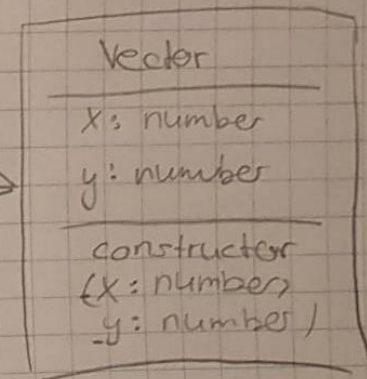 Vector
x: number
y: number
constructor
(x: number,
y: number)